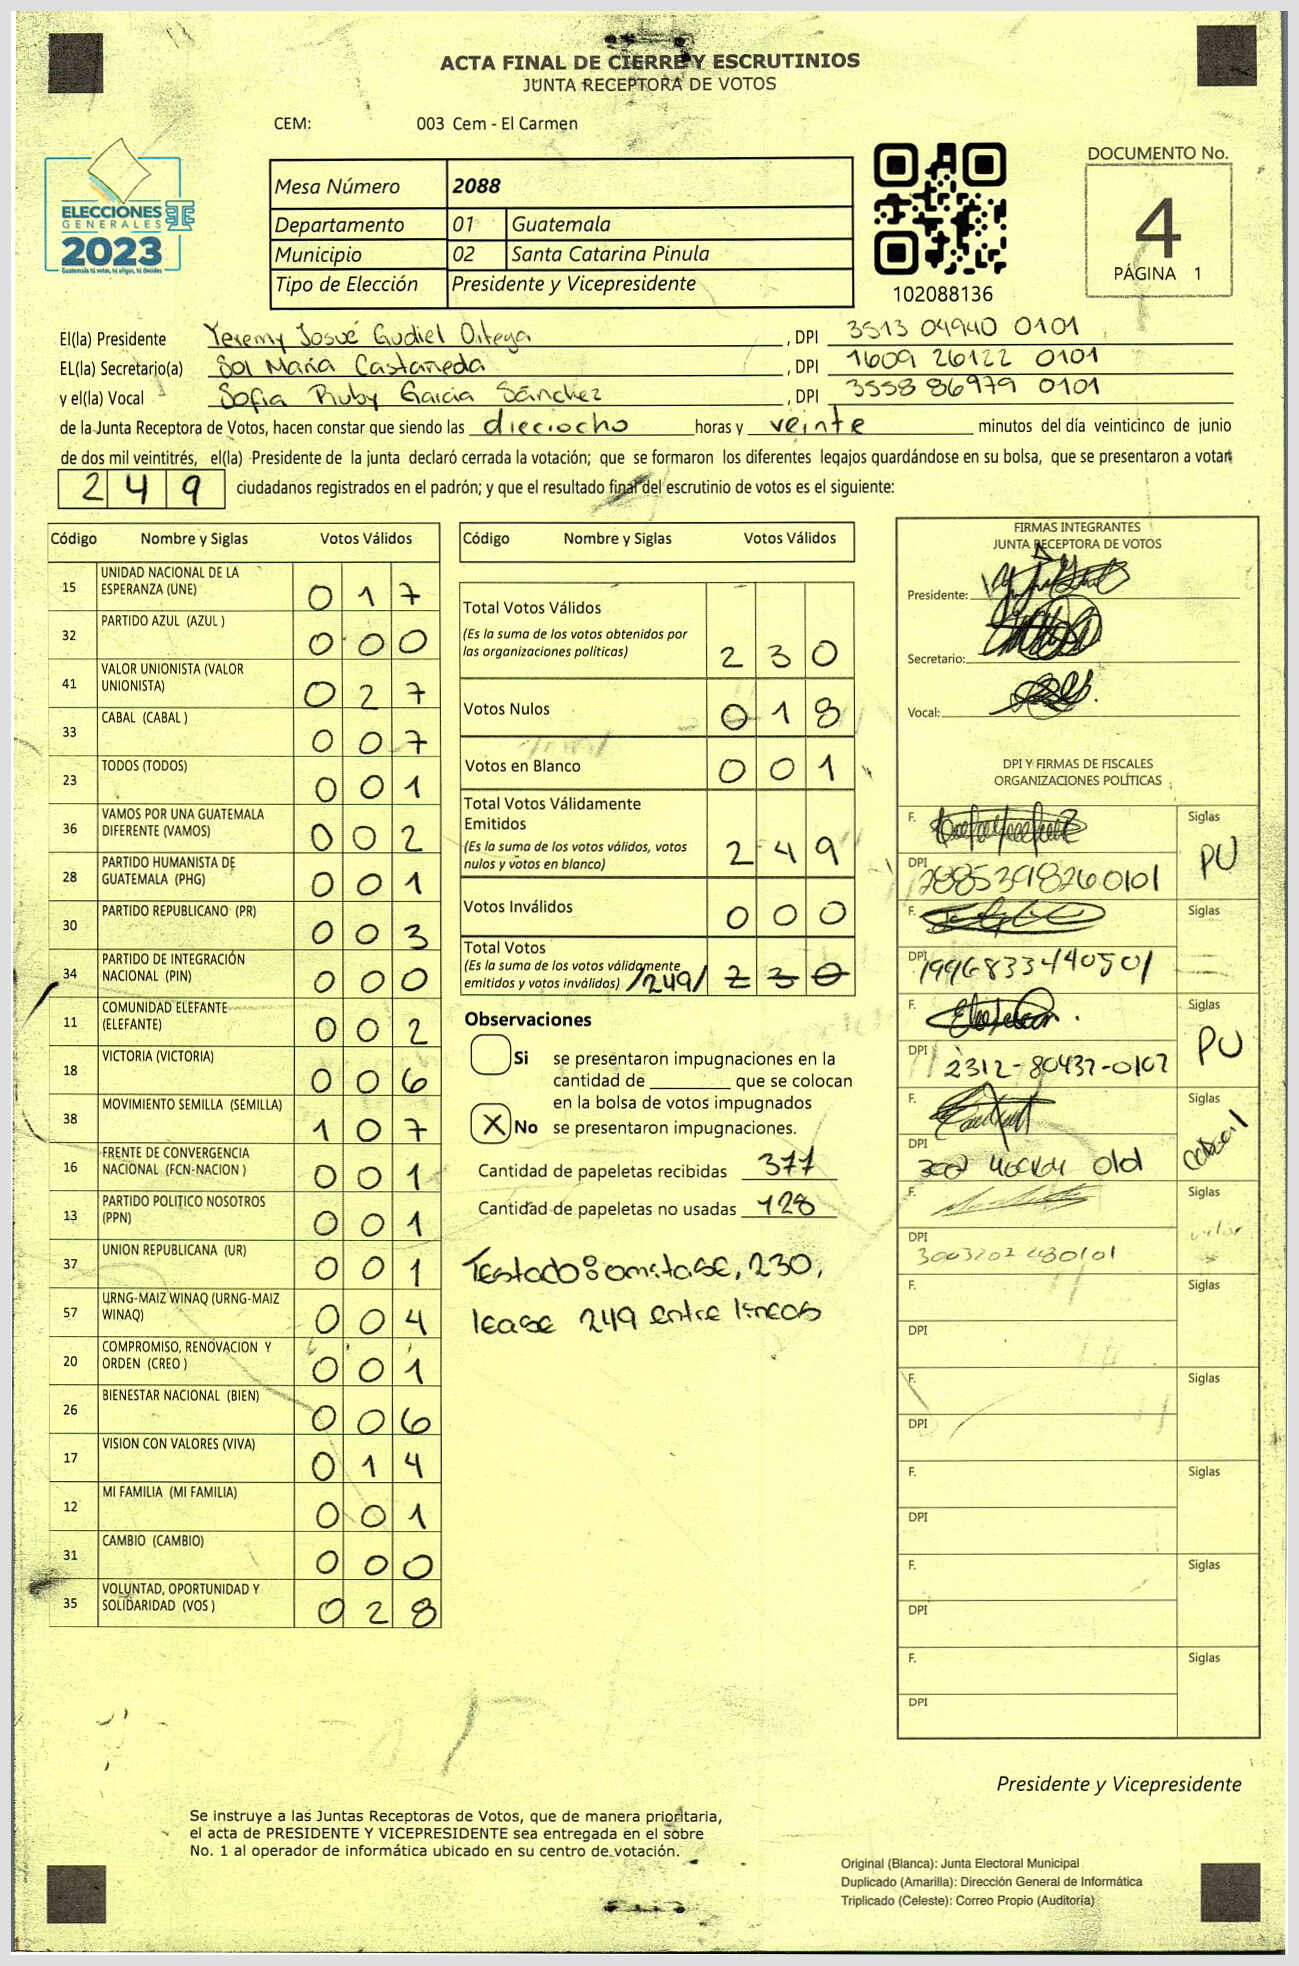 ACTA FINAL DE CIERRE Y ESCRUTINIOS
JUNTA RECEPTORA DE VOTOS
CEM: 003 Cem - El Carmen
ELECCIONES
GENERALES
2023
Guatemala tú votas, tú eliges, tú decides
Mesa Número 2088
Departamento 01 Guatemala
Municipio 02 Santa Catarina Pinula
Tipo de Elección Presidente y Vicepresidente
102088136
DOCUMENTO No.
4
PÁGINA 1
El(la) Presidente Yeremy Josué Gudiel Ortega , DPI 3513 04940 0101
EL(la) Secretario(a) Sol María Castañeda , DPI 1609 26122 0101
y el(la) Vocal Sofia Ruby Garcia Sánchez , DPI 3558 86979 0101
de la Junta Receptora de Votos, hacen constar que siendo las dieciocho horas y veinte minutos del día veinticinco de junio
de dos mil veintitrés, el(la) Presidente de la junta declaró cerrada la votación; que se formaron los diferentes legajos guardándose en su bolsa, que se presentaron a votar
249 ciudadanos registrados en el padrón; y que el resultado final del escrutinio de votos es el siguiente:
Código Nombre y Siglas Votos Válidos
15 UNIDAD NACIONAL DE LA ESPERANZA (UNE) 017
32 PARTIDO AZUL (AZUL ) 000
41 VALOR UNIONISTA (VALOR UNIONISTA) 027
33 CABAL (CABAL ) 007
23 TODOS (TODOS) 001
36 VAMOS POR UNA GUATEMALA DIFERENTE (VAMOS) 002
28 PARTIDO HUMANISTA DE GUATEMALA (PHG) 001
30 PARTIDO REPUBLICANO (PR) 003
34 PARTIDO DE INTEGRACIÓN NACIONAL (PIN) 000
11 COMUNIDAD ELEFANTE (ELEFANTE) 002
18 VICTORIA (VICTORIA) 006
38 MOVIMIENTO SEMILLA (SEMILLA) 107
16 FRENTE DE CONVERGENCIA NACIONAL (FCN-NACION ) 001
13 PARTIDO POLITICO NOSOTROS (PPN) 001
37 UNION REPUBLICANA (UR) 001
57 URNG-MAIZ WINAQ (URNG-MAIZ WINAQ) 004
20 COMPROMISO, RENOVACION Y ORDEN (CREO ) 001
26 BIENESTAR NACIONAL (BIEN) 006
17 VISION CON VALORES (VIVA) 014
12 MI FAMILIA (MI FAMILIA) 001
31 CAMBIO (CAMBIO) 000
35 VOLUNTAD, OPORTUNIDAD Y SOLIDARIDAD (VOS ) 028
Código Nombre y Siglas Votos Válidos
Total Votos Válidos
(Es la suma de los votos obtenidos por
las organizaciones políticas) 230
Votos Nulos 018
Votos en Blanco 001
Total Votos Válidamente
Emitidos
(Es la suma de los votos válidos, votos
nulos y votos en blanco) 249
Votos Inválidos 000
Total Votos
(Es la suma de los votos válidamente
emitidos y votos inválidos) /249/ 230
Observaciones
Si se presentaron impugnaciones en la
cantidad de ________ que se colocan
en la bolsa de votos impugnados
X No se presentaron impugnaciones.
Cantidad de papeletas recibidas 377
Cantidad de papeletas no usadas 128
Testado: omitase, 230,
lease 249 entre lineas
FIRMAS INTEGRANTES
JUNTA RECEPTORA DE VOTOS
Presidente:
Secretario:
Vocal:
DPI Y FIRMAS DE FISCALES
ORGANIZACIONES POLÍTICAS
F. Siglas PU
DPI 2885398260101
F. Siglas
DPI 1996833440501
F. Siglas PU
DPI 2312-80437-0107
F. Siglas
DPI
F. Siglas valor
DPI
F. Siglas
DPI
F. Siglas
DPI
F. Siglas
DPI
F. Siglas
DPI
F. Siglas
DPI
Presidente y Vicepresidente
Se instruye a las Juntas Receptoras de Votos, que de manera prioritaria,
el acta de PRESIDENTE Y VICEPRESIDENTE sea entregada en el sobre
No. 1 al operador de informática ubicado en su centro de votación.
Original (Blanca): Junta Electoral Municipal
Duplicado (Amarilla): Dirección General de Informática
Triplicado (Celeste): Correo Propio (Auditoria)